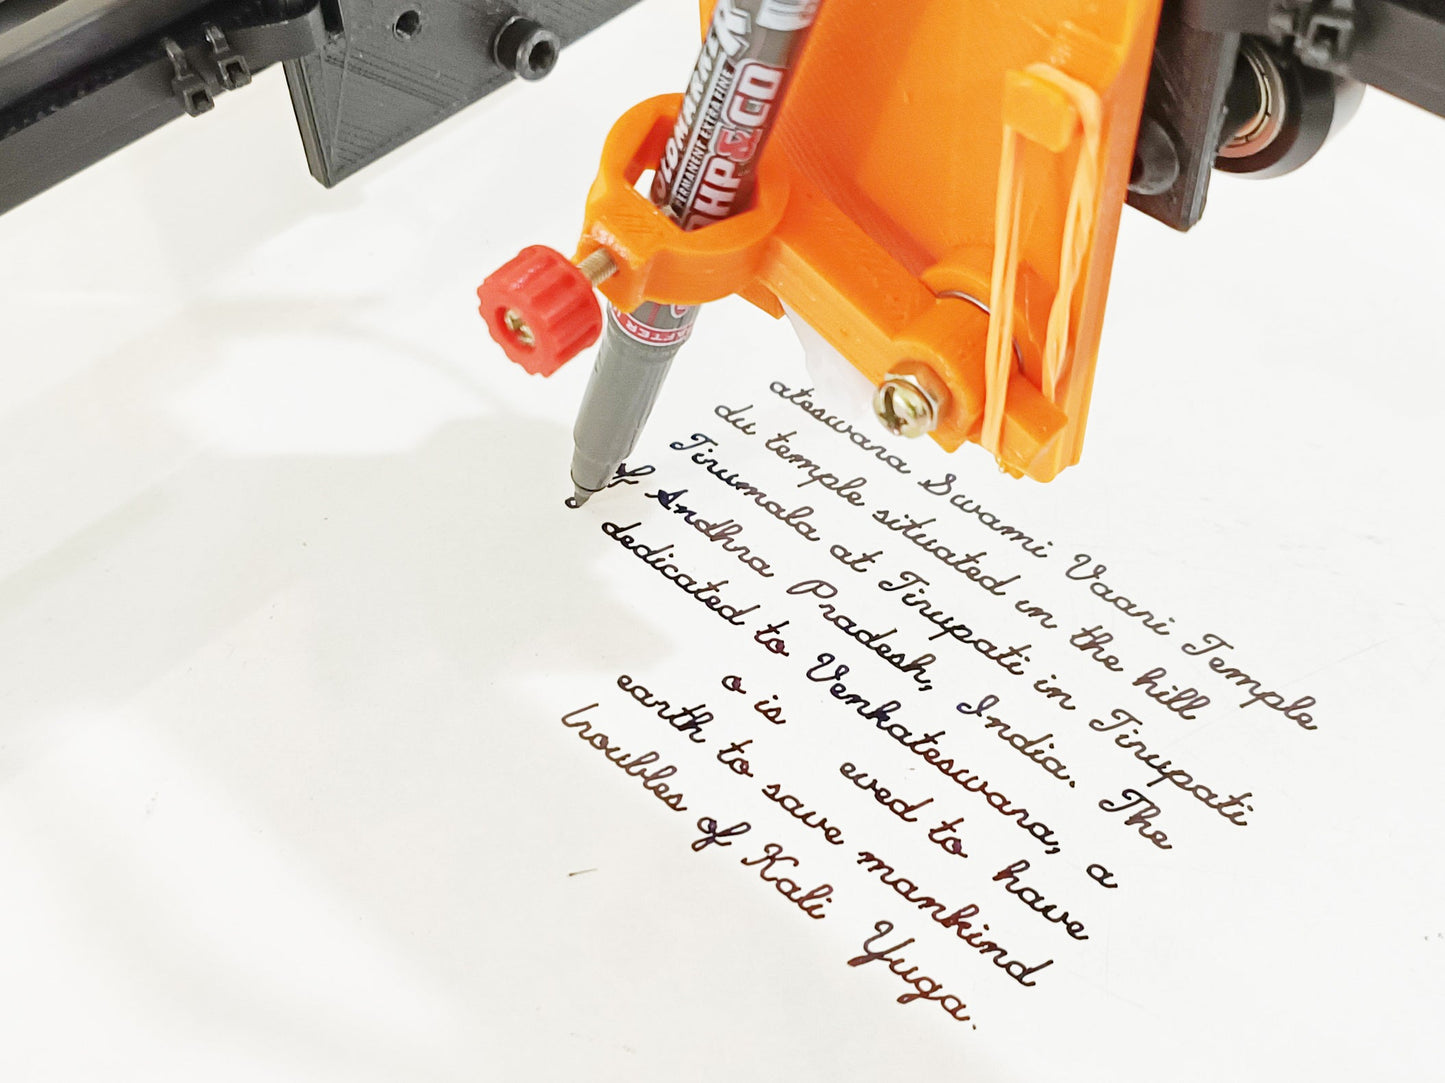 COLORMARKER
PERMANENT EXTRA FINE
OHP & CD
AFTER
ateswara Swami Vaari Temple
du temple situated in the hill
Tirumala at Tirupati in Tirupati
of Andhra Pradesh, India. The
dedicated to Venkateswara, a
o is eved to have
earth to save mankind
troubles of Kali Yuga.